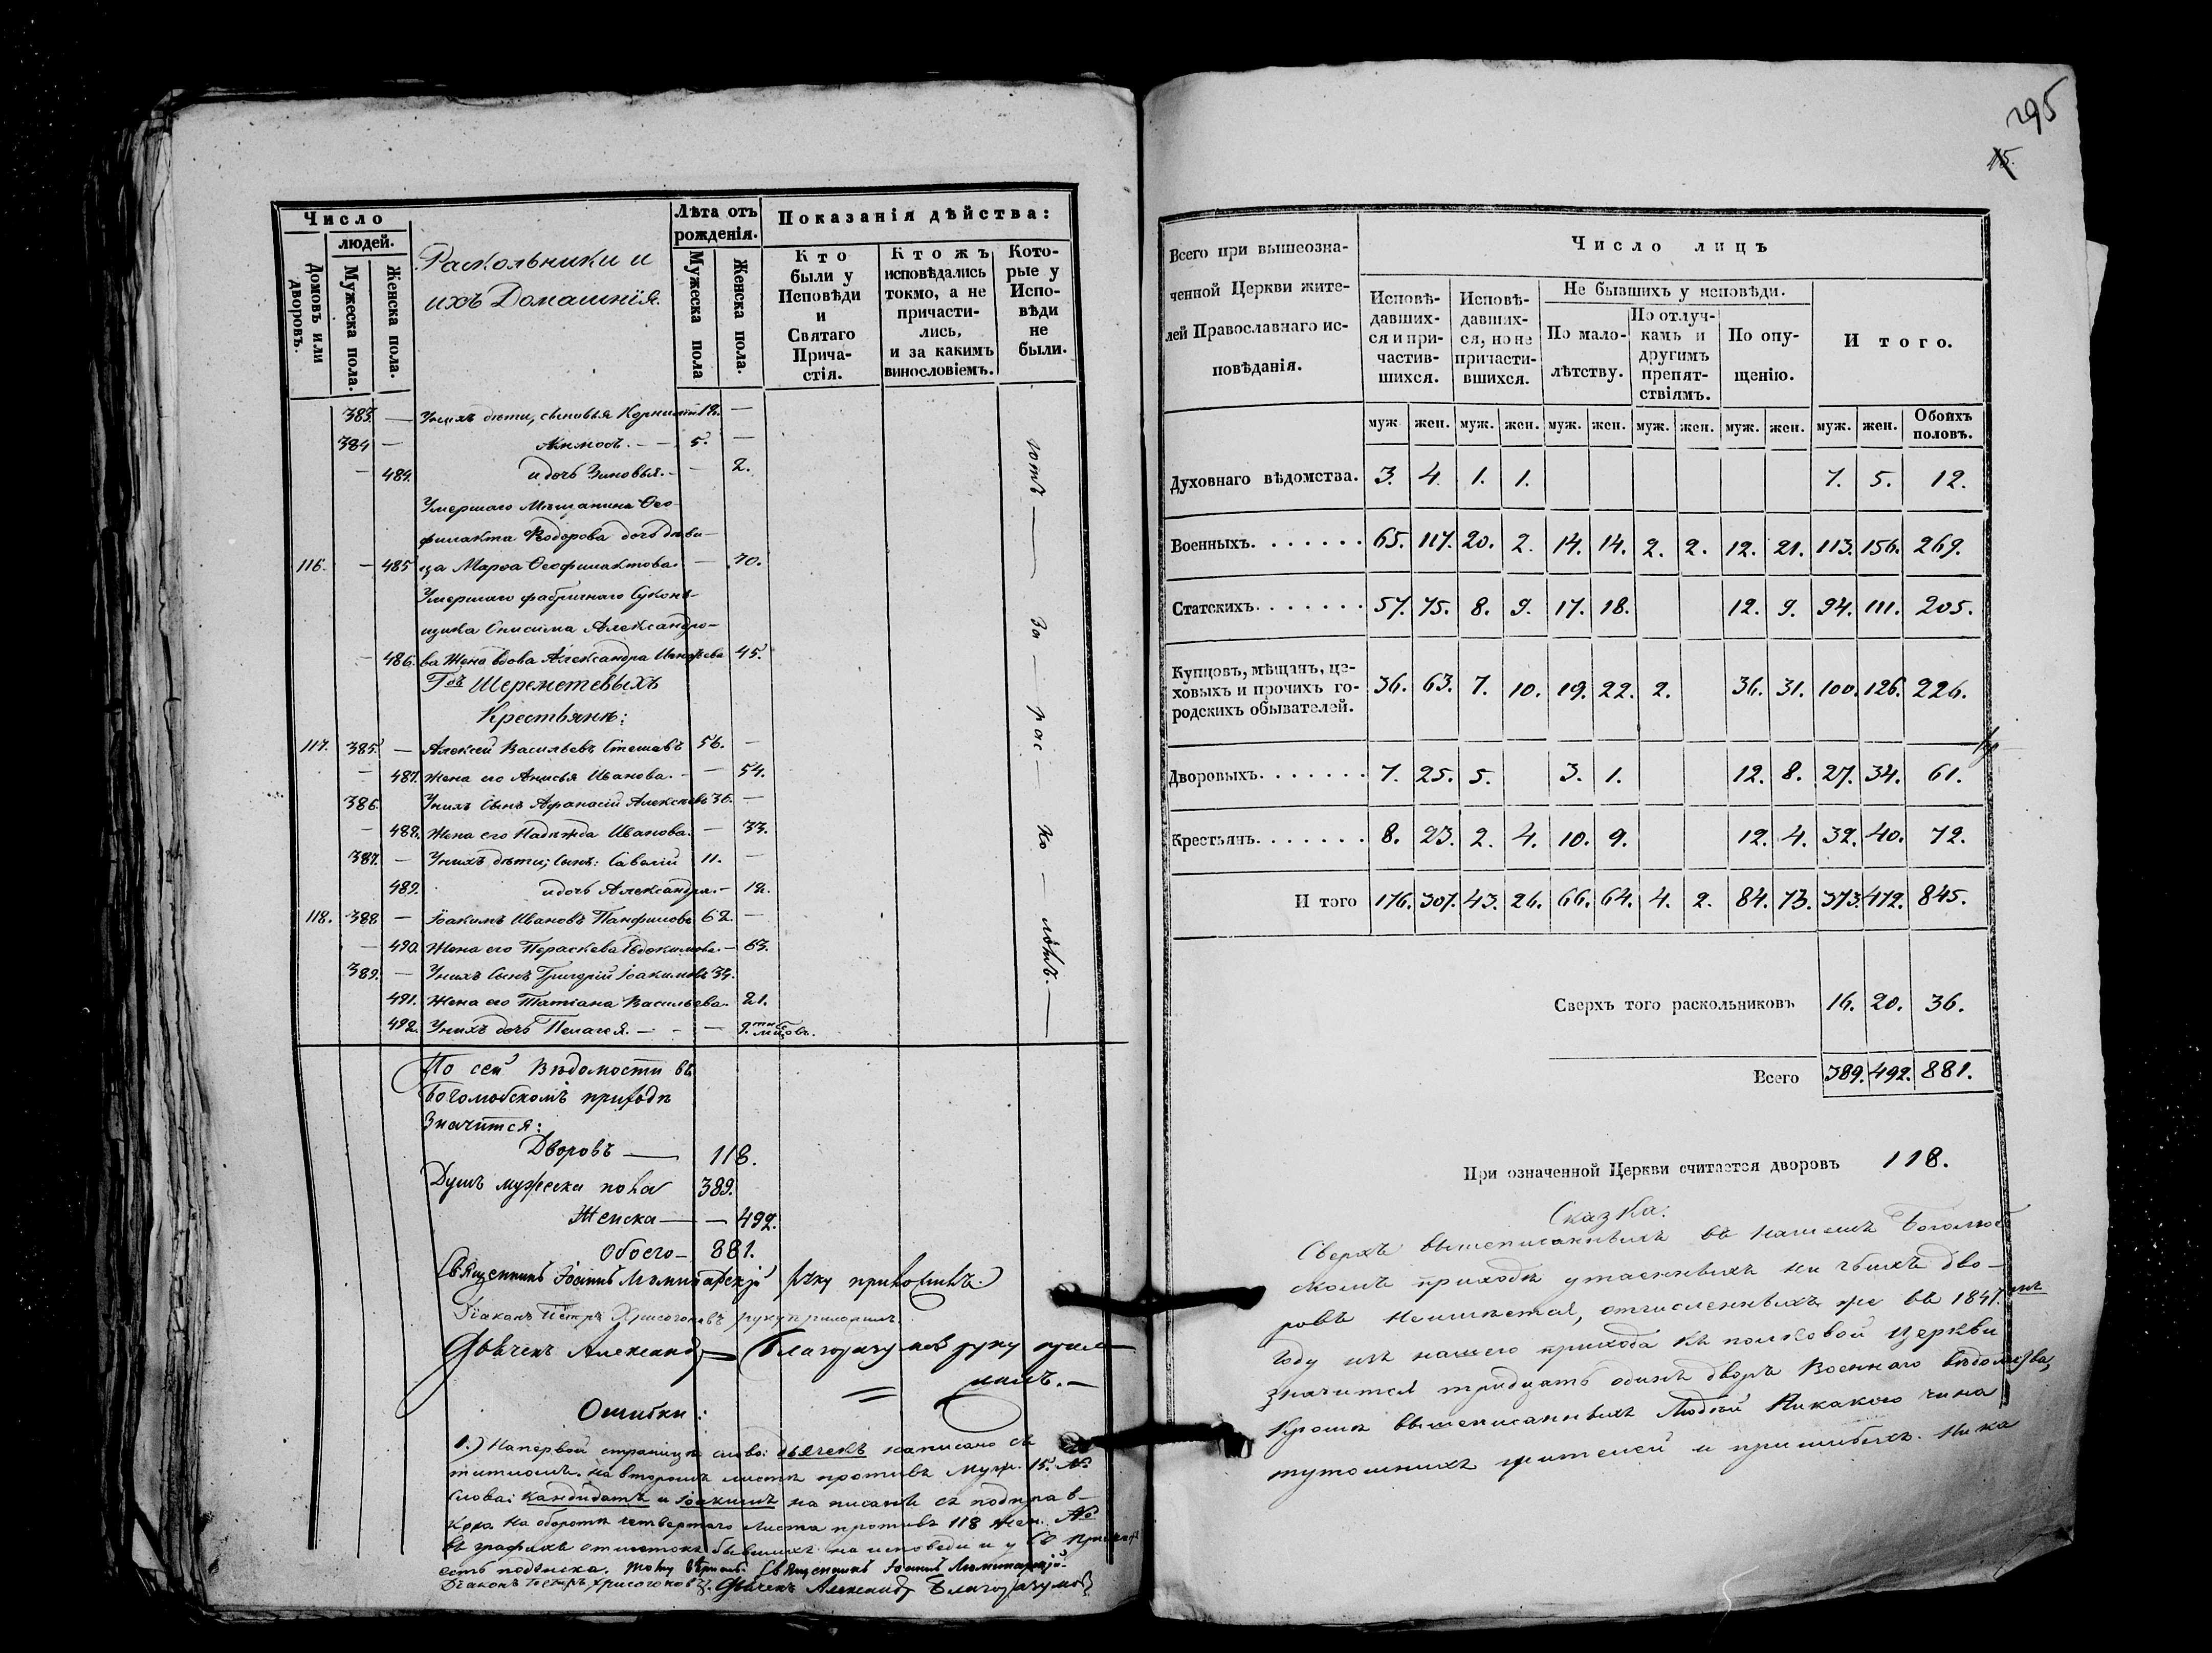 Число
людей.
Домовъ или дворовъ.
Мужеска пола.
Женска пола.
Раскольники и
ихъ Домашнія.
Лѣта отъ
рожденія.
Мужеска пола
Женска пола.
Показанія дѣйства:
Кто
были у
Исповѣди
и
Святаго
Прича-
стія.
Ктожъ
исповѣдались
токмо, а не
причасти-
лись,
и за какимъ
винословіемъ.
Кото-
рые у
Испо-
вѣди
не
были.
383. — Унихъ дѣти, сыновья Корнилій 12. —
384 — Акимъ. — — 5. —
— 484. и дочь Зиновья. — — 2.
Умершаго Мѣщанина Ѳео-
филакта Ѳеодорова дочь дѣви-
116. — 485 ца Марѳа Ѳеофилактова. — 70.
Умершаго фабричнаго Сукон-
щика Онисима Александро-
— 486. ва Жена вдова Александра 45.
Гдъ Шереметевыхъ
Крестьяне:
117. 385. — Алексѣй Васильевъ 56. —
— 487. Жена его Анисья Иванова. — — 54.
386. Унихъ Сынъ Аѳанасій Алексѣевъ 36. —
— 488. Жена его Надежда Иванова. — 33.
387. — Унихъ дѣти; Сынъ: Савелій 11. —
489. и дочь Александра. — 12.
118. 388. — Іоакимъ Ивановъ Панфиловъ 62. —
— 490. Жена его Параскева Евдокимова. — 63.
389. — Унихъ Сынъ Григорій Іоакимовъ 34.
491. Жена его Татіана Васильева. 21.
492. Унихъ дочь Пелагея. — — — 9.
По сей Вѣдомости въ
Боголюбскомъ приходѣ
Значится:
Дворовъ — 118.
Душъ мужеска пола 389.
Женска — — 492.
Обоего — 881.
Священникъ Іоаннъ руку приложилъ.
Діаконъ Петръ Хрисогоновъ руку приложилъ.
Дьячекъ Александръ Благоразумовъ руку прило-
жилъ. —
Ошибки:
1.) На первой страницѣ слово: дьячекъ написано съ
титломъ. на второмъ листѣ противъ Муж. 15. №
Слова: Кандидатъ и Іоакимъ написаны съ поправ-
кою. На оборотѣ четвертаго листа противъ 118 жен. №
въ графахъ бывшихъ на исповеди и у Св.
есть подчистка. Священникъ Іоаннъ
Діаконъ Петръ Хрисогоновъ. Дьячекъ Александръ Благоразумовъ
295
15.
Всего при вышеозна-
ченной Церкви жите-
лей Православнаго ис-
повѣданія.
Число лицъ
Исповѣ-
давших-
ся и при-
частив-
шихся.
Исповѣ-
давших-
ся, но не
причасти-
вшихся.
Не бывшихъ у исповѣди.
По мало-
лѣтству.
По отлуч-
камъ и
другимъ
препят-
ствіямъ.
По опу-
щенію.
И того.
муж. жен. муж. жен. муж. жен. муж. жен. муж. жен. муж. жен. Обоихъ половъ.
Духовнаго вѣдомства. 3. 4. 1. 1. 7. 5. 12.
Военныхъ. . . . . . . 65. 117. 20. 2. 14. 14. 2. 2. 12. 21. 113. 156. 269.
Статскихъ. . . . . . . 57. 75. 8. 9. 17. 18. 12. 9. 94. 111. 205.
Купцовъ, мѣщанъ, це-
ховыхъ и прочихъ го-
родскихъ обывателей. 36. 63. 7. 10. 19. 22. 2. 36. 31. 100. 126. 226.
Дворовыхъ. . . . . . . 7. 25. 5. 3. 1. 12. 8. 27. 34. 61.
Крестьянъ. . . . . . . 8. 23. 2. 4. 10. 9. 12. 4. 32. 40. 72.
И того 176. 307. 43. 26. 66. 64. 4. 2. 84. 73. 373. 472. 845.
Сверхъ того раскольниковъ 16. 20. 36.
Всего 389. 492. 881.
При означенной Церкви считается дворовъ 118.
Сказка.
Сверхъ вышеписанныхъ въ нашемъ Боголюб
скомъ приходѣ утаенныхъ ни чьихъ дво-
ровъ неимѣется, отчисленныхъ же въ 1847.мъ
году изъ нашего прихода къ полковой Церкви
значится тридцать одинъ дворъ Военнаго вѣдомства,
Кромѣ вышеписанныхъ людей Никакого чина
тутошнихъ жителей и пришлыхъ. Ника